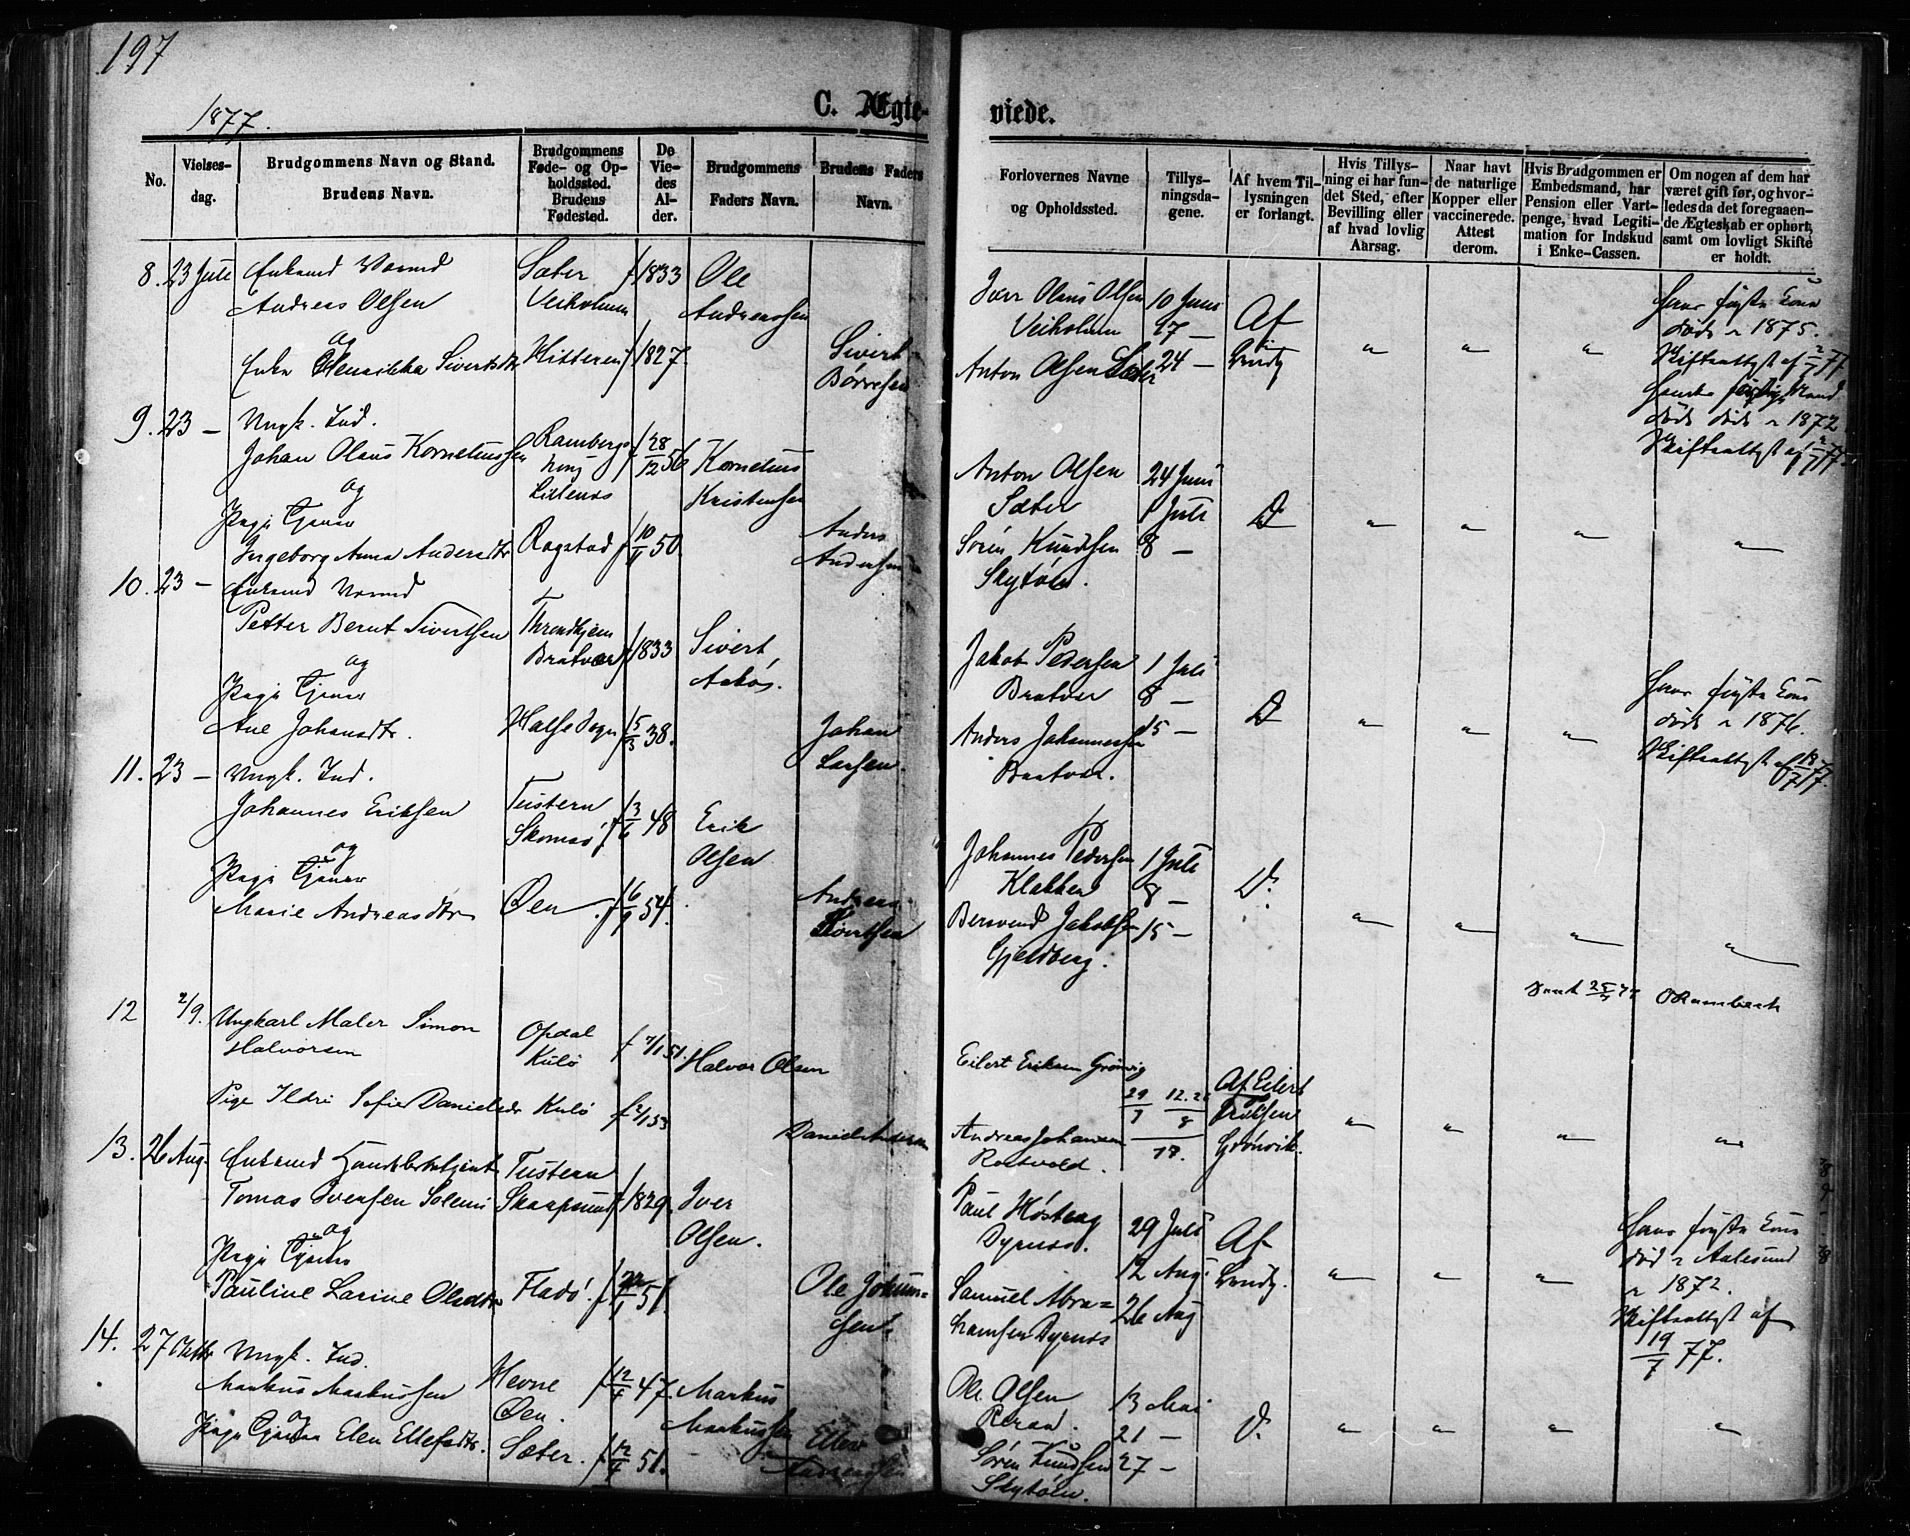 197
1877.
C. Ægte-
viede.
No.
Vielses-
dag.
Brudgommens Navn og Stand.
Brudens Navn.
Brudgommens
Føde- og Op-
holdssted.
Brudens
Fødested.
De
Vie-
des
Al-
der.
Brudgommens
Faders Navn.
Brudens Faders
Navn.
Forlovernes Navne
og Opholdssted.
Tillys-
ningsda-
gene.
Af hvem Til-
lysningen
er forlangt.
Hvis Tillys-
ning ei har fun-
det Sted, efter
Bevilling eller
af hvad lovlig
Aarsag.
Naar havt
de naturlige
Kopper eller
vaccinerede.
Attest
derom.
Hvis Brudgommen er
Embedsmand, har
Pension eller Vart-
penge, hvad Legiti-
mation for Indskud
i Enke-Cassen.
Om nogen af dem har
været gift før, og hvor-
ledes da det foregaaen-
de Ægteskab er ophørt,
samt om lovligt Skifte
er holdt.
8. 23 Juli Enkemd
Andreas Olsen
og
Enke Sivertsdtr
Sæter
Veiholmen
Hitteren
f 1833
f 1827.
Ole
Andreassen
Sivert
Børresen
Iver Olaus Olsen
Veiholmen
Anton Olsen Sæter
10 Juni
17 —
24 —
Af
Hans første Kone
døde i 1875.
Skifteattest af 2/7 77
Hendes første Mand
døde i 1872
Skifteattest af 2/7 77
9. 23 — Ungk. Ind.
Johan Olaus Korneliussen
og
Pige Tjener
Ingeborg Anna Andersdtr
Ramberg
Rogstad
f 28/12 56
f 10/11 50
Kornelius
Kristensen
Anders
Andersen
Anton Olsen
Sæter
Sören Knudsen
Skytöen.
24 Juni
1 Juli
8 —
D
10. 23 — Enkemd
Petter Bernt Sivertsen
og
Pige Tjener
Ane Johansdtr.
Throndhjem
Bratvær
Halse Sogn
f 1833
f 15/3 38.
Sivert
Johan
Larsen.
Jakob Pedersen
Bratvær
Anders Johannessen
Bratvær.
1 Juli
8 —
15 —
D
Hans første Kone
døde i 1876.
Skifteattest af 18/7 77.
11. 23 — Ungk. Ind.
Johannes Eriksen
og
Pige Tjener
Marie Andreasdtr
Tustern
Skomsö
Öen
f 3/6 48
f 16/9 54.
Erik
Olsen
Andreas
Sivertsen
Johannes Pedersen
Klakken
Bersvend Jakobsen
Gjeldberg.
1 Juli
8 —
15 —
D.
12 2/9. Ungkarl Maler Simon
Halvorsen
Pige Ildri Sofie Danielsdr
Opdal
Kulö
Kulö
Halvor Olsen
Daniel Andersen
Eilert Eriksen Grönvig
Andreas Johansen
Rostvold.
29/7 12. 26/8
77.
Af Eilert
Eriksen
Grönvik.
13. 26 Aug. Enkemd Handelsbetjent
Tomas Iversen Solemi
og
Pige Tjener
Pauline Larine Olsdtr
Tustern
Skarpsund
Fladö.
f 1829.
51.
Iver
Olsen.
Ole Johann=
sen.
Paul Höstung
Dyrnes.
Samuel Abra=
hamsen Dyrnes
29 Juli
12 Aug.
26 Aug
Af
Hans første Kone
død i Aalesund
i 1872.
Skifteattest af
19/7 77.
14. 27 Oktbr Ungk. Ind.
Markus Markussen
og
Pige Tjener Elen Ellefsdtr.
Hevne
Öen.
Sæter.
f 12/4 47.
f 12/4 51.
Markus
Markussen
Ellev
Andersen
Ole Olsen
Sören Knudsen
Skytöen.
13 Mai
21 —
27 —
D.